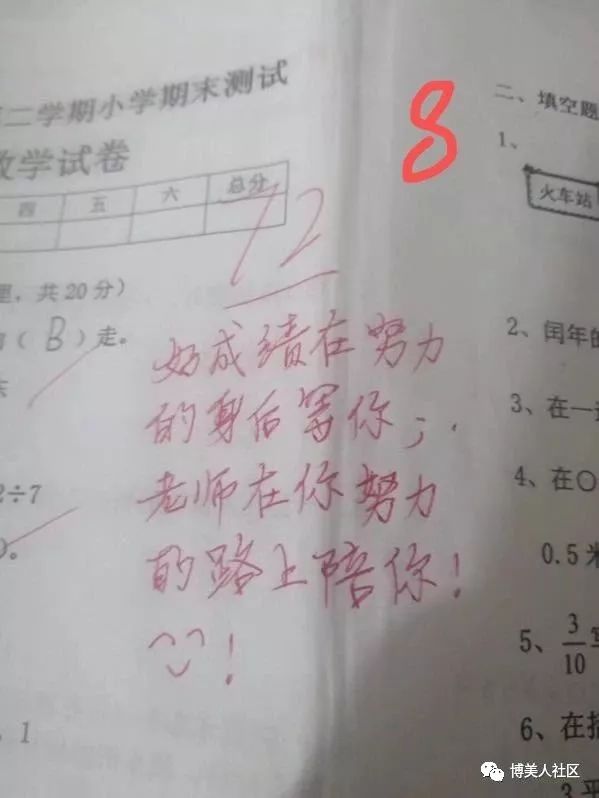 二学期小学期末测试
数学试卷
四 五 六 总分
72
8
共20分)
( B )走。
2÷7
1
好成绩在努力
的身后等你;
老师在你努力
的路上陪你!
!
二、填空题
1、
火车站
2、闰年的
3、在一
4、在○
0.5米
5、3/10
6、在括
3平
博美人社区